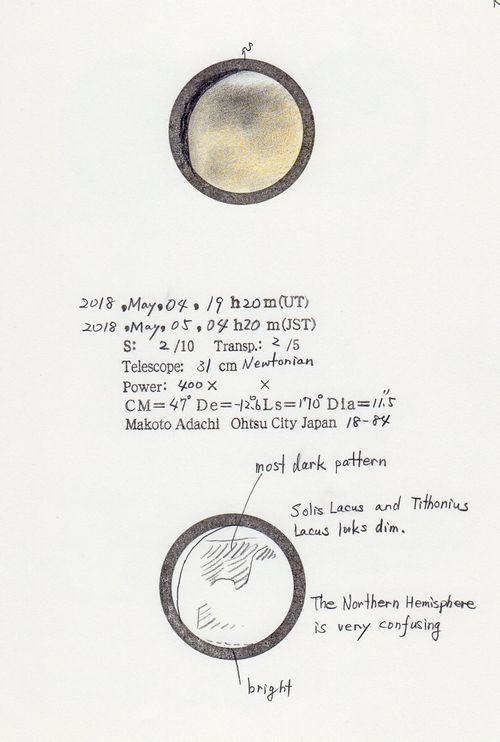 2018, May, 04, 19 h 20 m (UT)
2018, May, 05, 04 h 20 m (JST)
S: 2 /10 Transp.: 2 /5
Telescope: 31 cm Newtonian
Power: 400 × ×
CM=47° De=-12.6° Ls=170° Dia=11.5"
Makoto Adachi Ohtsu City Japan 18-84
most dark pattern
Solis Lacus and Tithonius
Lacus looks dim.
The Northern Hemisphere
is very confusing
bright